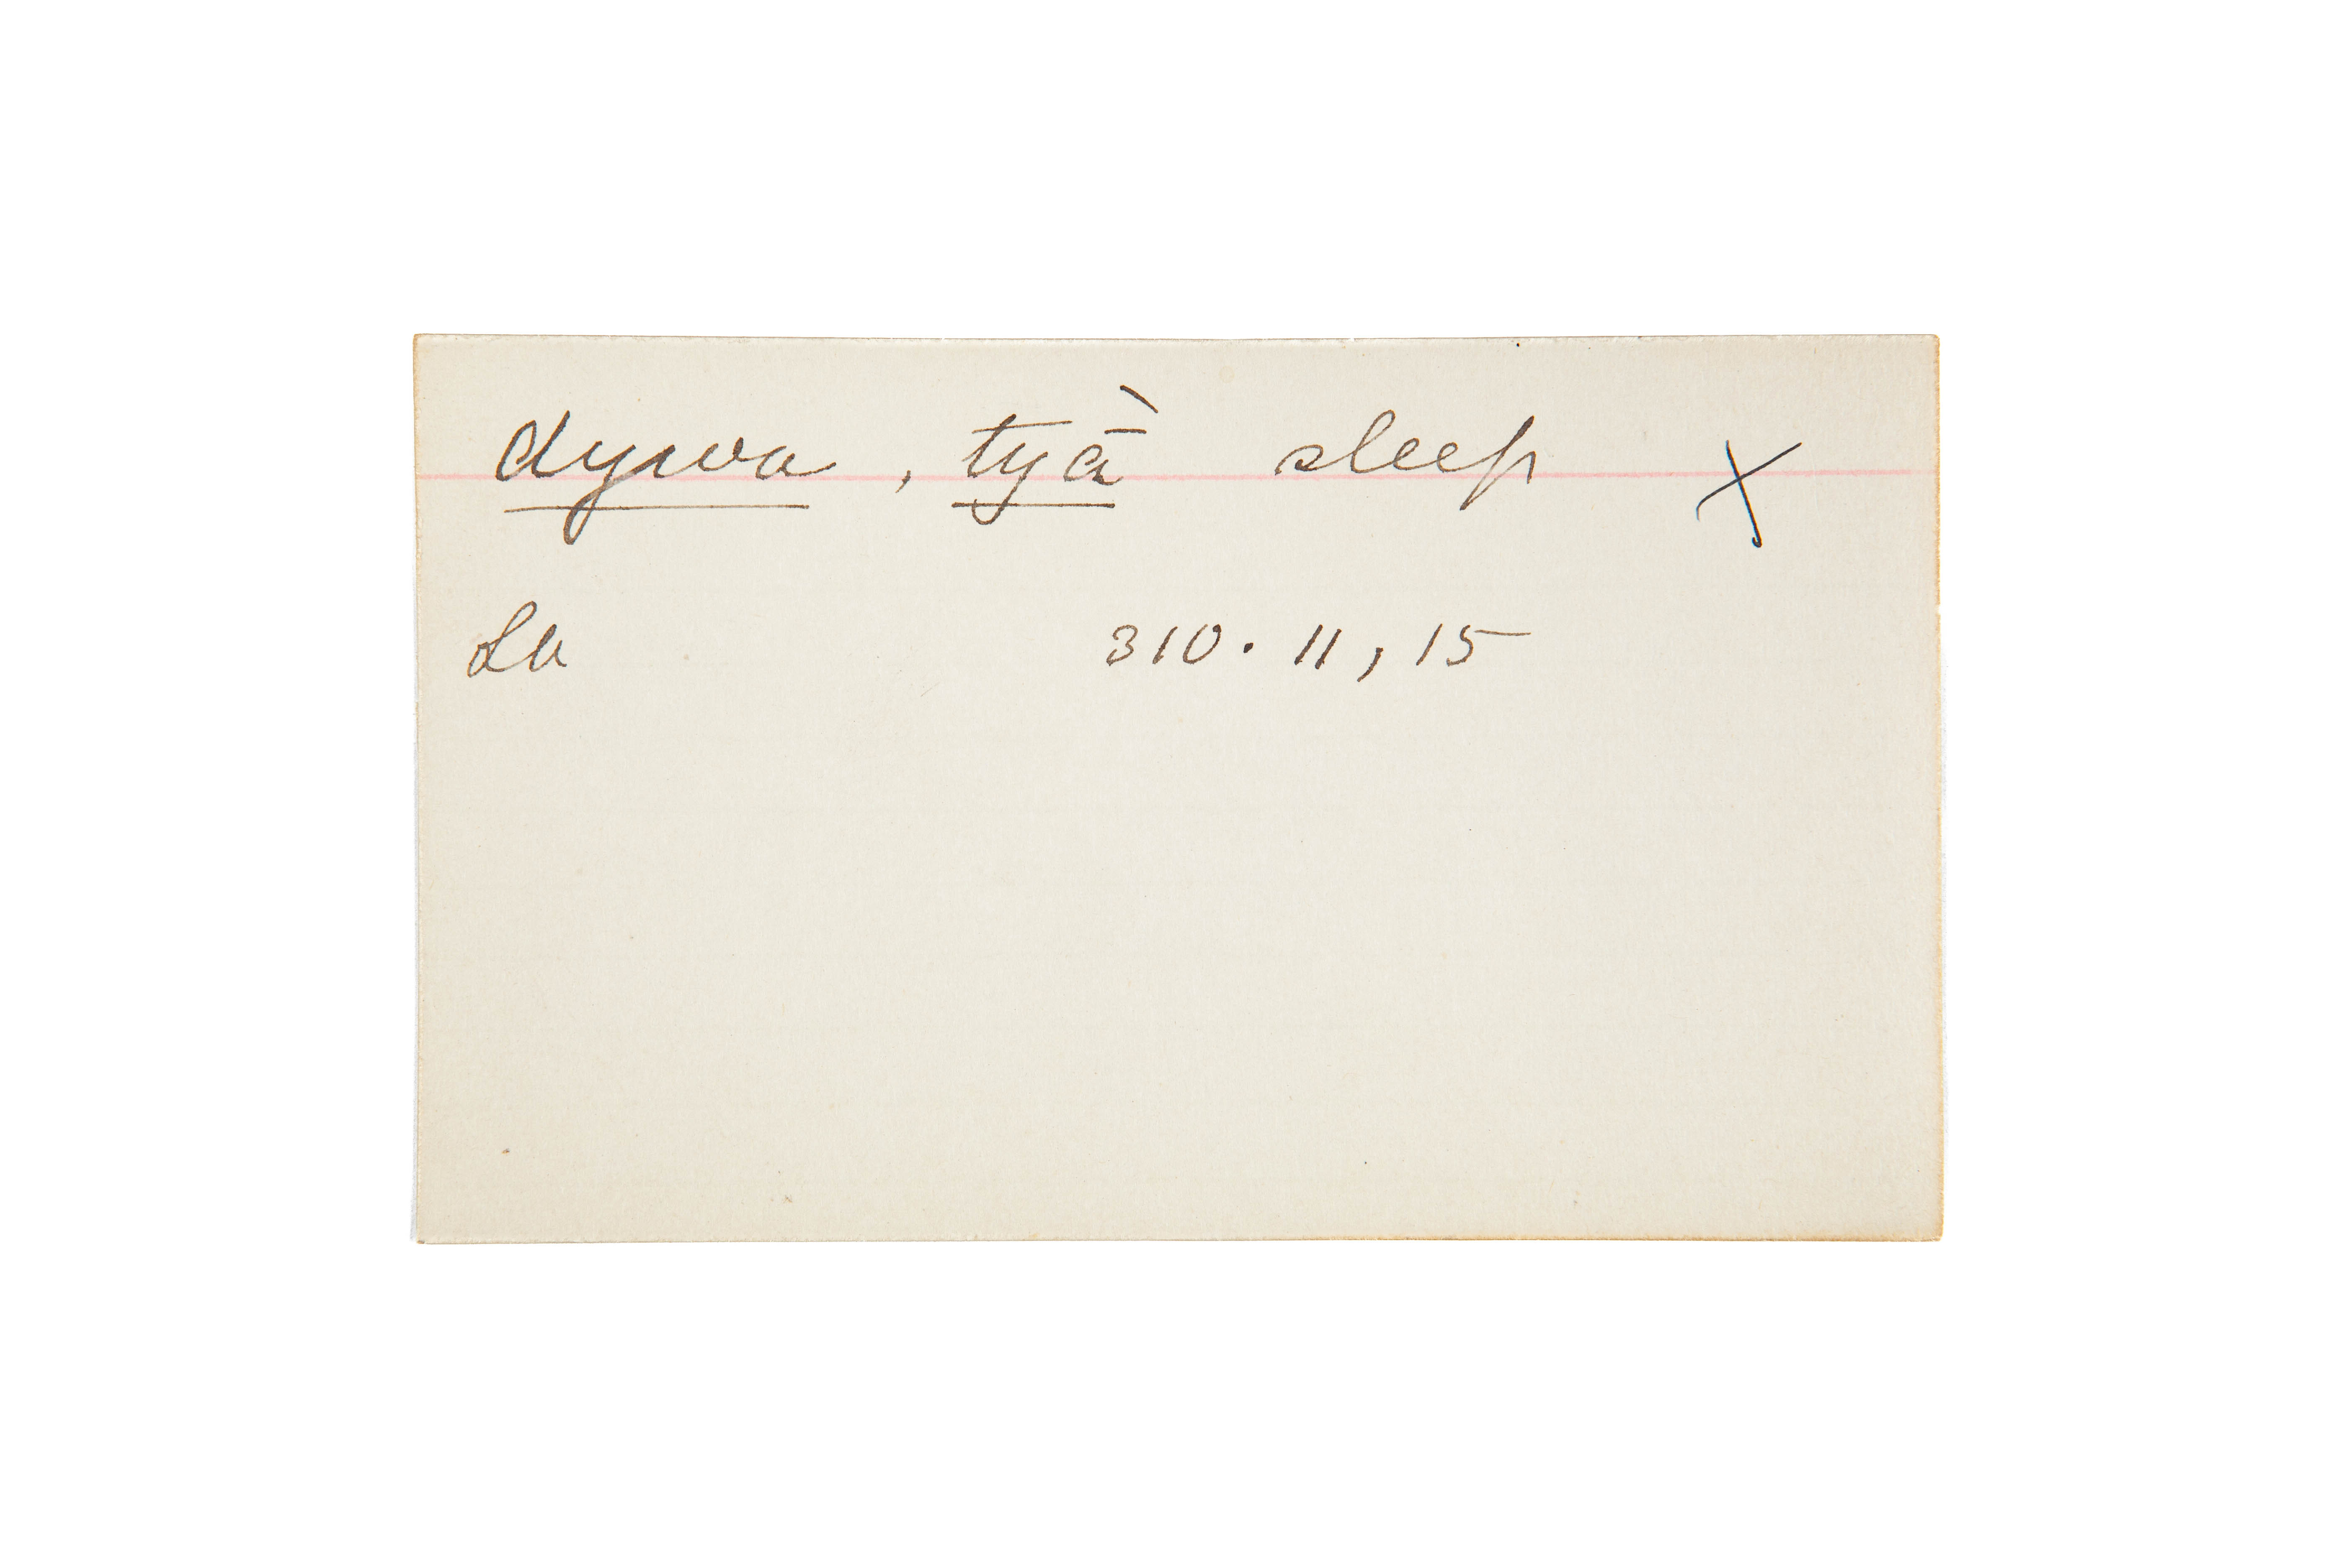 dywa, tyā̀ sleep X
La 310. 11, 15